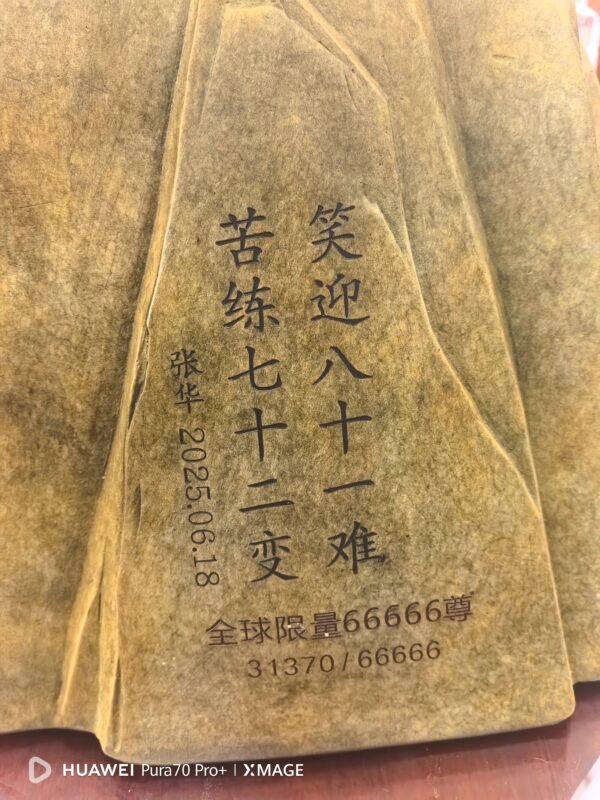 笑迎八十一难
苦练七十二变
张华 2025.06.18
全球限量66666尊
31370/66666
HUAWEI Pura70 Pro+ | XMAGE